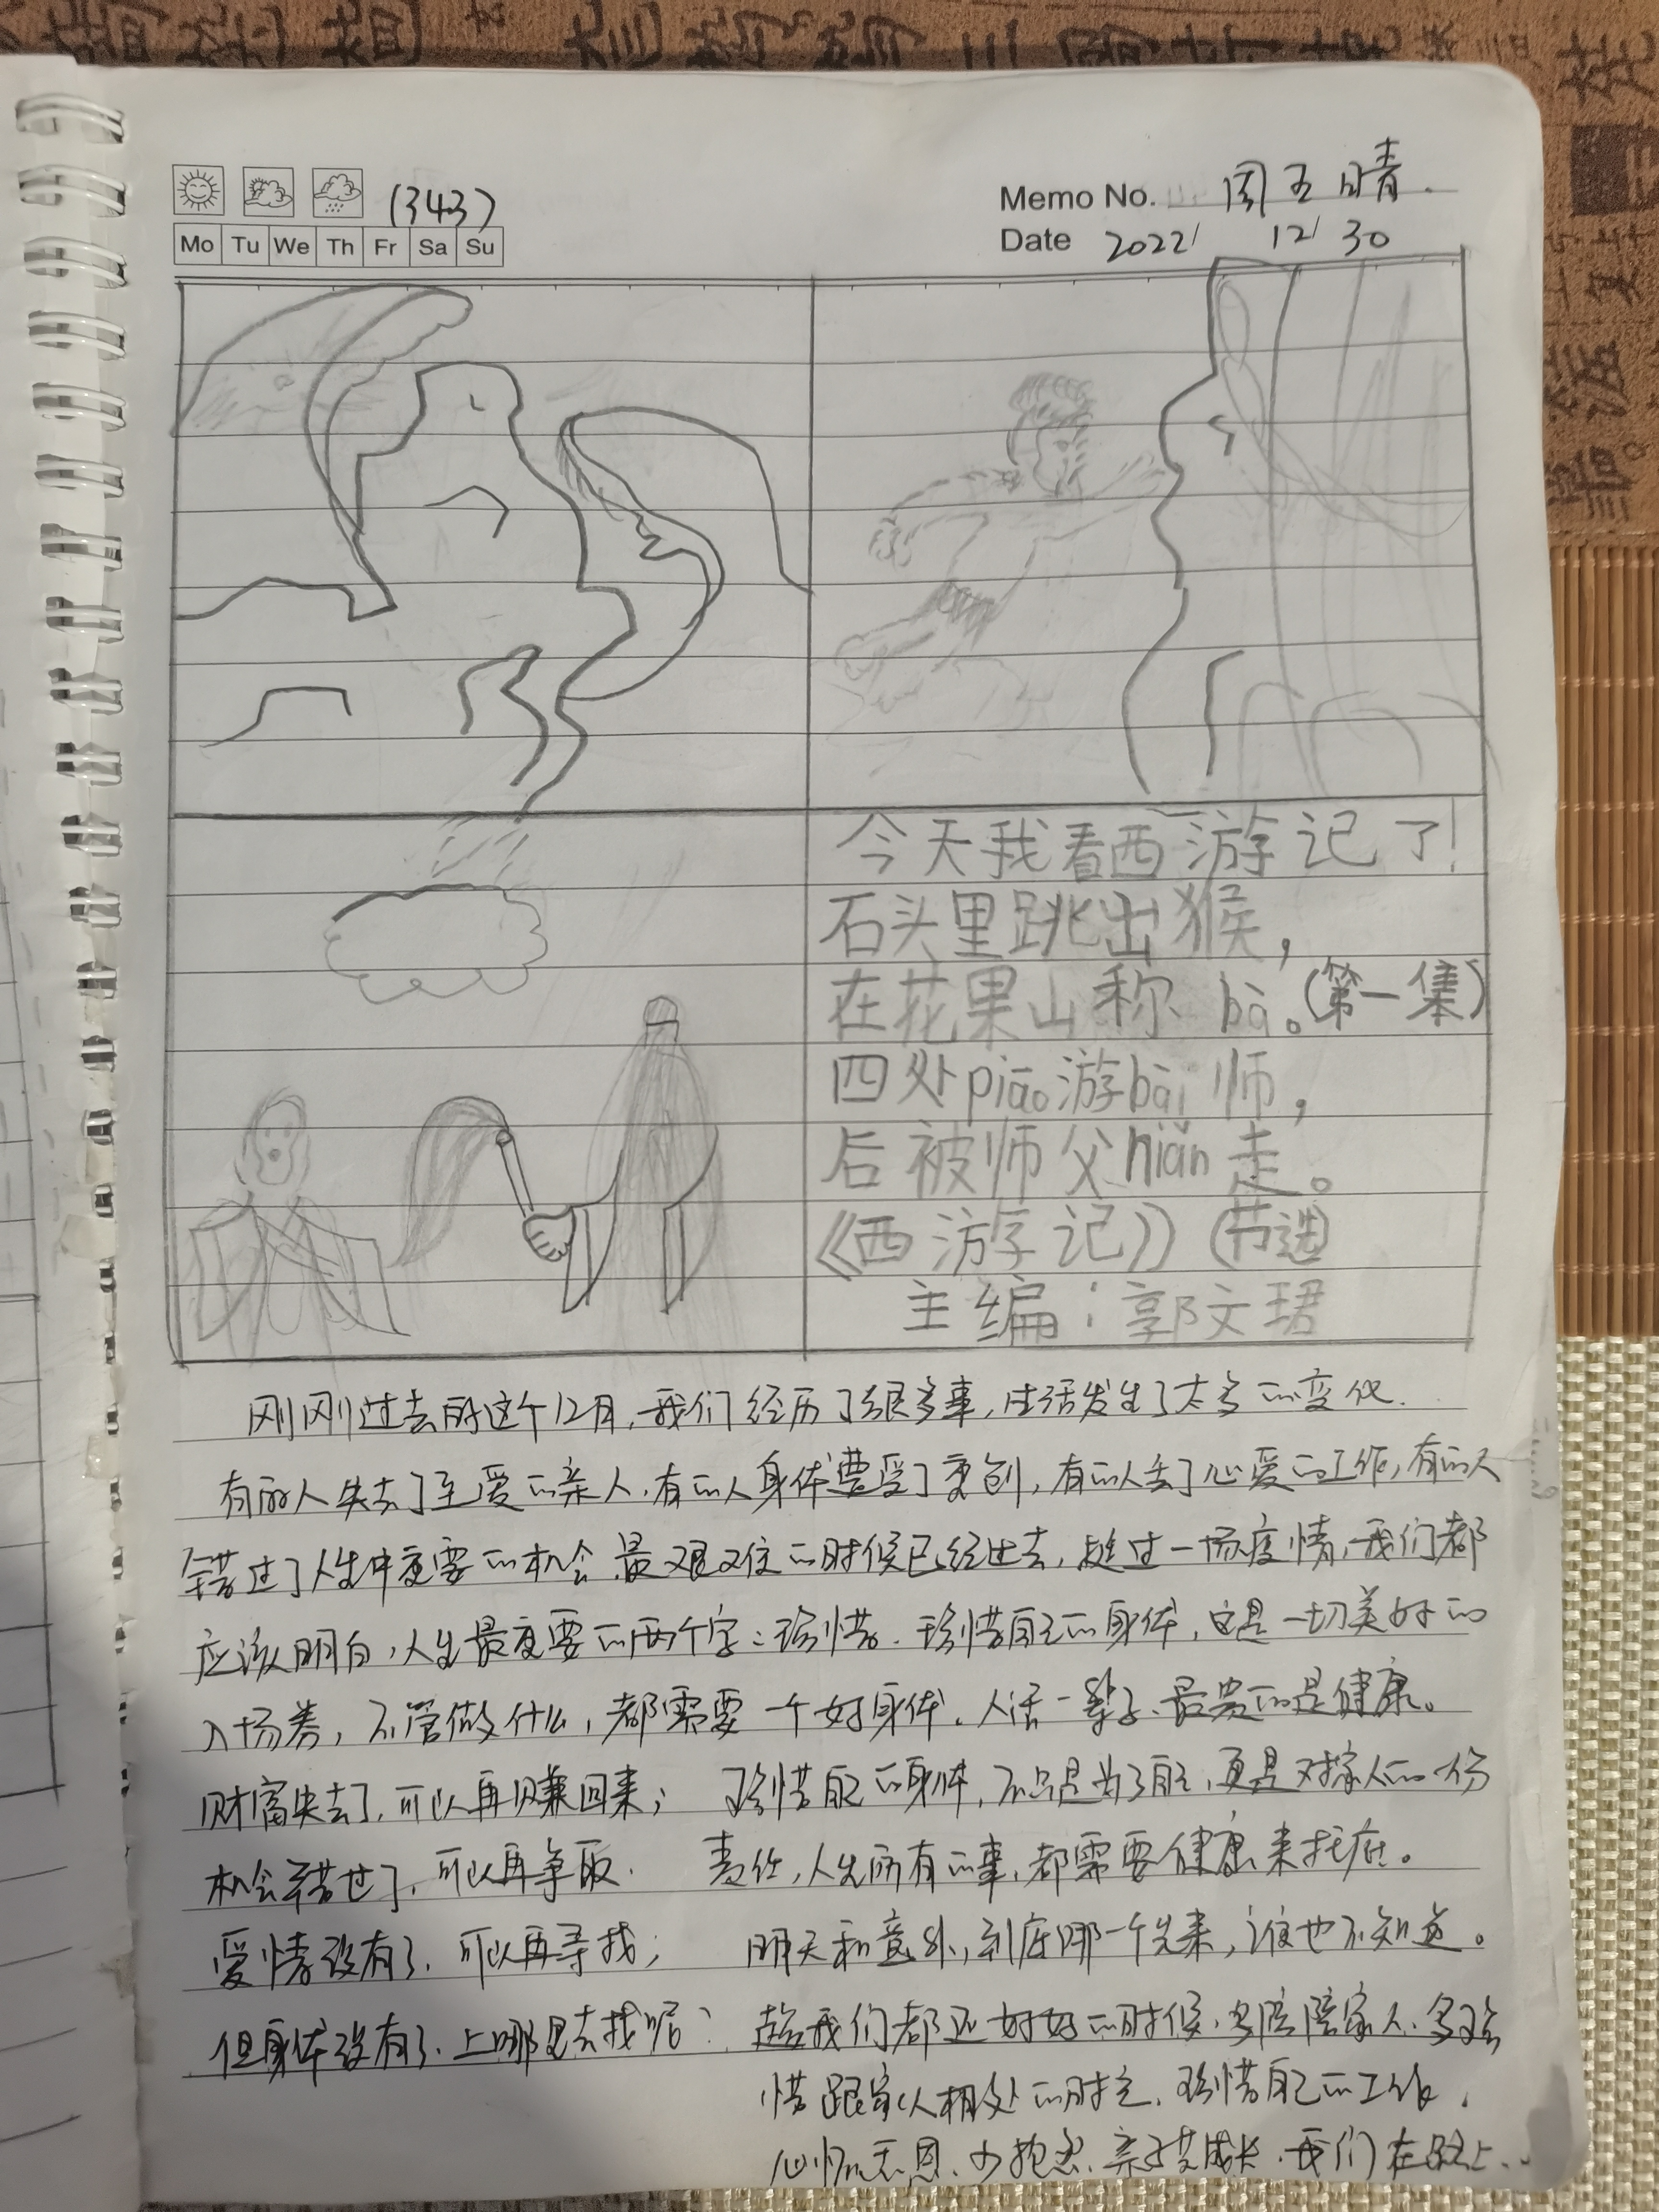 (343)
Memo No. 周五 晴.
Mo Tu We Th Fr Sa Su
Date 2022/ 12/ 30
今天我看西游记了!
石头里跳出猴,
在花果山称bà。(第一集)
四处piāo游bài师,
后被师父niǎn走。
《西游记》(节选)
主编:郭文珺
刚刚过去的这个12月,我们经历了很多事,生活发生了太多的变化.
有的人失去了至爱的亲人,有的人身体遭受了重创,有的人丢了心爱的工作,有的人
错过了人生中重要的机会.最艰难的时候已经过去,趟过一场疫情,我们都
应该明白,人生最重要的两个字:珍惜.珍惜自己的身体,它是一切美好的
入场券,不管做什么,都需要一个好身体.人活一辈子、最贵的是健康。
财富失去了,可以再赚回来;
机会错过了,可以再争取.
爱情没有了、可以再寻找;
但身体没有了、上哪里去找呢?
珍惜自己的身体,不只是为了自己,更是对家人的一份
责任,人生所有的事,都需要健康来托底。
明天和意外,到底哪一个先来,谁也不知道。
趁我们都还好好的时候,多陪陪家人、多珍
惜跟家人相处的时光,珍惜自己的工作,
心怀感恩、少抱怨、亲子共成长,我们在路上...